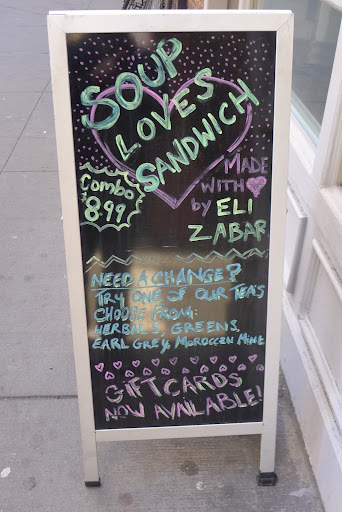 SOUP
LOVES
SANDWICH
Combo
$8.99
MADE
WITH
by ELI
ZABAR
NEED A CHANGE?
TRY ONE OF OUR TEA'S
CHOOSE FROM:
HERBALS, GREENS,
EARL GREY, MOROCCAN MINT
GIFT CARDS
NOW AVAILABLE!